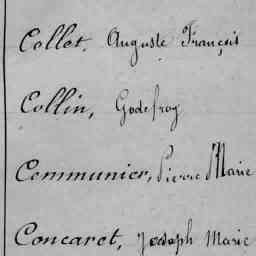 Collet, Auguste François
Collin, Godefroy
Communier, Pierre Marie
Concaret, Joseph Marie